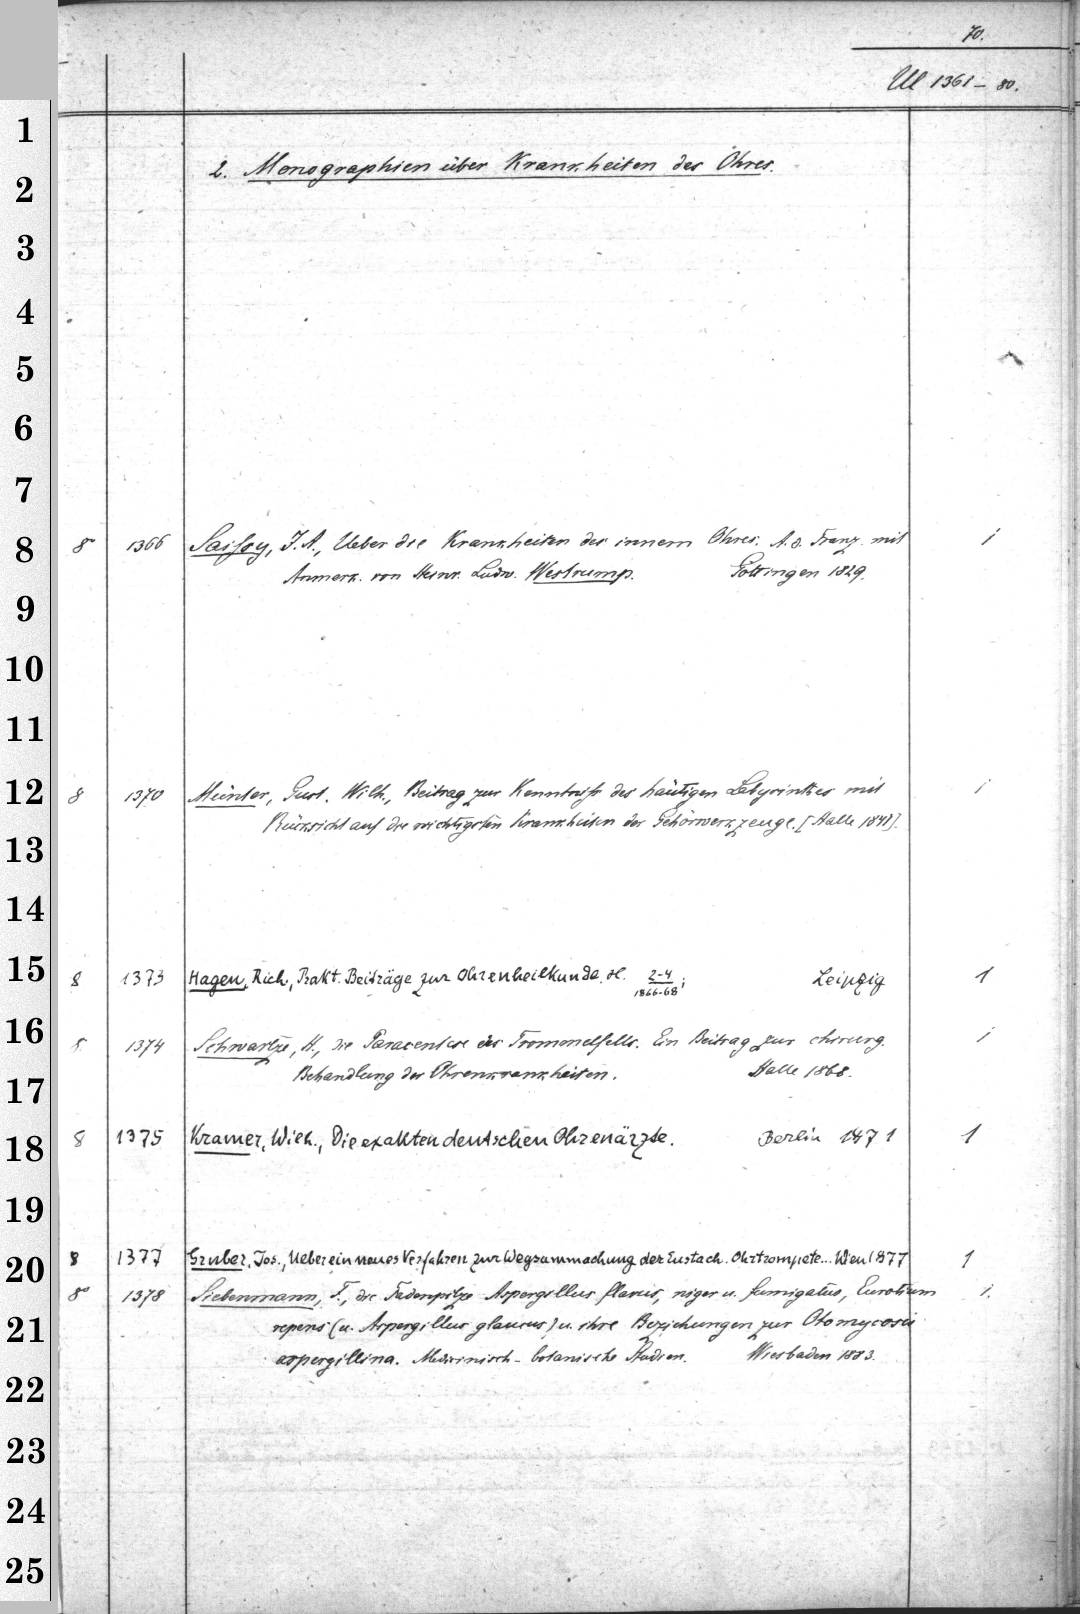 70.
Ul 1361 - 80.
1
2. Monographien über Krankheiten des Ohres.
2
3
4
5
6
7
8 8° 1366 Saissy, J. A., Ueber die Krankheiten des innern Ohres. A. d. Franz. mit 1
Anmerk. von Heinr. Ludw. Westrump. Göttingen 1829.
9
10
11
12 8 1370 Münter, Gust. Wilh., Beitrag zur Kenntniss des häutigen Labyrinthes mit 1
Rücksicht auf die wichtigsten Krankheiten der Gehörwerkzeuge. [Halle 1841].
13
14
15 8 1373 Hagen, Rich., Prakt. Beiträge zur Ohrenheilkunde. H. 2-4 Leipzig 1
1866-68;
16 8 1374 Schwartze, H., die Paracentese des Trommelfells. Ein Beitrag zur chirurg. 1
Behandlung der Ohrenkrankheiten. Halle 1868.
17
18 8 1375 Kramer, Wilh., Die exakten deutschen Ohrenärzte. Berlin 1871 1
19
20 8 1377 Gruber, Jos., Ueber ein neues Verfahren zur Wegsammachung der Eustach. Ohrtrompete... Wien 1877 1
8° 1378 Siebenmann, F., die Fadenpilze Aspergillus flavus, niger u. fumigatus, Eurotium 1.
21 repens (u. Aspergillus glaucus) u. ihre Beziehungen zur Otomycosis
aspergillina. Medicinisch-botanische Studien. Wiesbaden 1883.
22
23
24
25